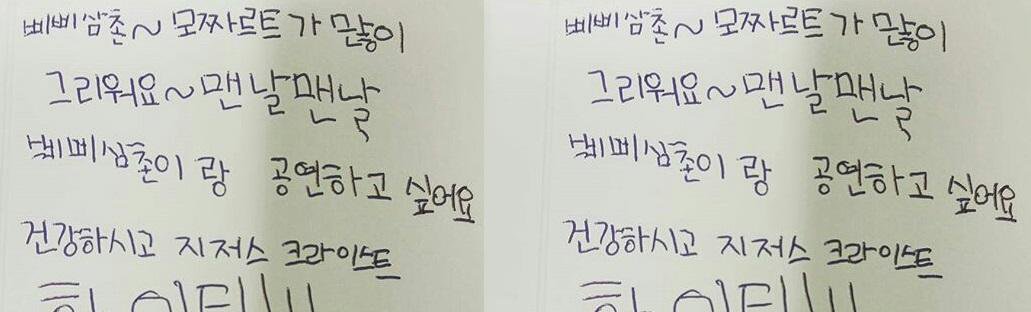 삐삐삼촌~ 모짜르트가 많이
그리워요~맨날맨날
삐삐삼촌이랑 공연하고 싶어요
건강하시고 지저스 크라이스트
삐삐삼촌~ 모짜르트가 많이
그리워요~맨날맨날
삐삐삼촌이랑 공연하고 싶어요
건강하시고 지저스 크라이스트